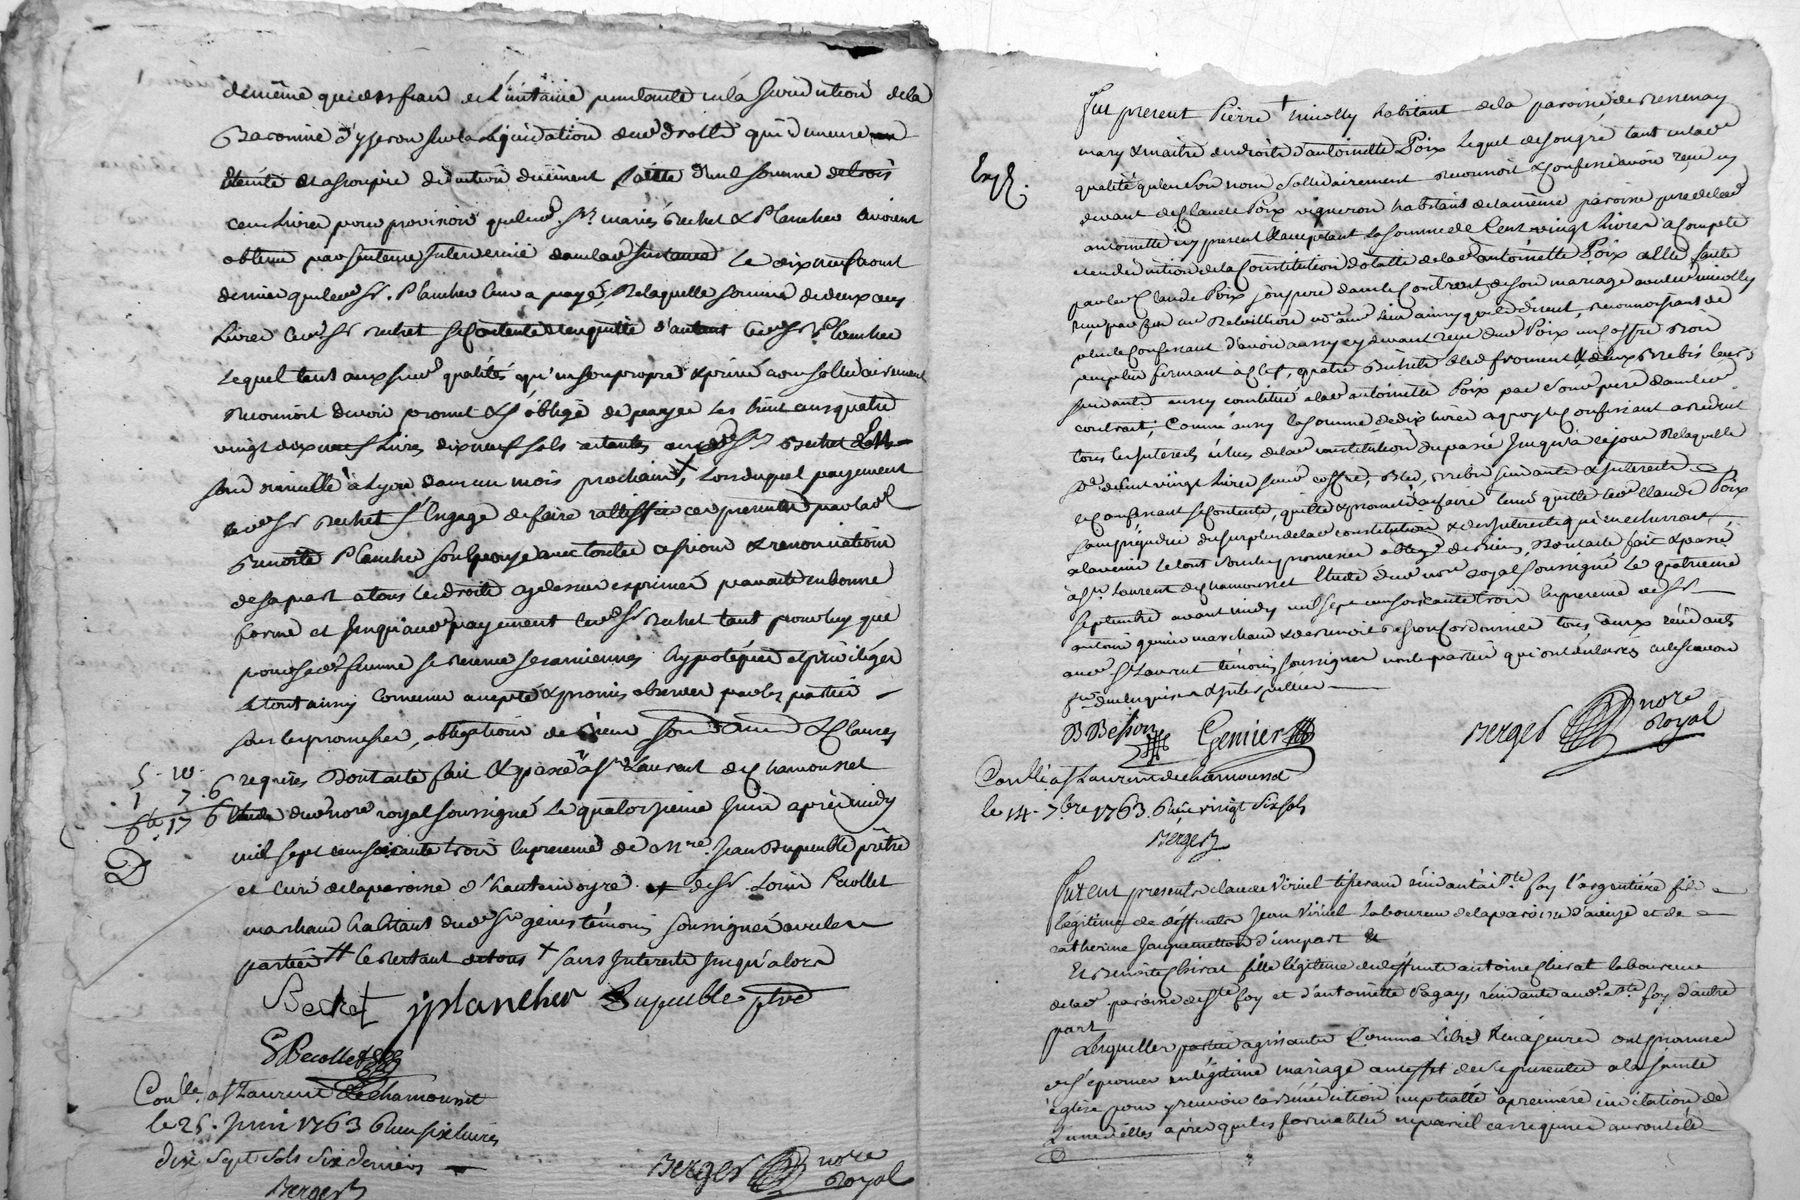 de même que des frais de l'instance pendante en la Juridiction de la
Baronnie d'yzeron sur la liquidation desd droits qui demeure
éteinte et assoupie déduction duement faite d'une somme de trois
cens Livres pour provision que lesd. Srs mariés Bechet & Plancher avoient
obtenu par sentence intervenue dans lad instance le dix neuf aout
dernier que led Sr. Plancher leur a payé, de laquelle somme de deux cens
Livres led Sr Bechet se contente & en quitte d'autant led Sr Plancher
Lequel tant auxsusd qualités qu'en son propre & privé nom solidairement
reconnoit devoir promet & s'oblige de payer les huit cens quatre
vingt dix neuf Livres dix neuf sols restantes audt Sr Bechet
son domicille à Lyon dans un mois prochain, Lors duquel payement
led Sr Bechet s'Engage de faire rattiffier ces presentes par lad
Benoite Plancher son Epouse avec toutes cessions & renonciations
de sa part a tous les droits cy dessus exprimés par acte en bonne
forme et jusqu'aud payement led Sr Bechet tant pour luy que
pour sad femme se reserve ses anciennes hypotéques et privilèges
Le tout ainsy convenu accepté & promis observer par les parties
sous les promesses, obligations de Biens & Clauses
requises Dont acte fait & passé a St Laurent de Chamousset
Etude dud nore royal soussigné Le quatorzieme Juin après midy
mil sept cens soixante trois En presence de Mre. Jean Dupeuble prêtre
et Curé de la paroisse d'hauterivoyre et de Sr. Louis Pecollet
marchand habitant dud St genis témoins soussignés avec les
parties # le restant × sans Interets jusqu'alors
5. 10.
1 7. 6
6# 17 6
D
Bechet jplancher Dupeuble ptre
Pecollet
Conlle. a St Laurent de Chamousset
le 25. Juin 1763 Reçu six livres
dix sept sols six deniers
Berger
Berger nore Royal
Fut present Pierre nicolly habitant de la paroisse de Bessenay
mary & maitre des droits d'antoinette Poix Lequel de son gré tant en lad
qualité qu'en son nom solidairement reconnoit & confesse avoir reçu cy
devant de Claude Poix vigneron habitant de la même paroisse pere de lad
antoinette icy present & acceptant la somme de Cent vingt Livres a Compte
et en deduction de la Constitution dotalle de lad antoinette Poix a Elle faite
par led Claude Poix son pere dans le Contract de son mariage avec led nicolly
reçu par nore ainsy qu'ils disent, reconnoissant de
plus le Confessant d'avoir aussy cy devant reçu dud Poix un Coffre Bois
sapin fermant à Clef, quatre Bichets Bled froment & deux Brebis leurs
suivants aussy constitué a lad antoinette Poix par sond pere dans led
contract, Comme aussy la somme de dix Livres a quoy le Confessant a reduit
tous les interets échus de lad constitution du passé jusqu'à ce jour De laquelle
Sme de Cent vingt Livres susd coffre, Bled, Brebis suivants & Interets
le Confessant se Contente, quitte & promet de faire tenir quitte led Claude Poix
sans préjudice du surplus de lad constitution & des Interets qui en echerront
a l'avenir Le tout sous les promesses obligon de Biens, Dont acte fait & passé
à St. Laurent de Chamousset Etude dud nore royal soussigné Le quatrieme
septembre avant midy mil sept cens soixante trois En presence de Sr
antoine genier marchand & de Benoit Besson Cordonnier tous deux résidants
aud St Laurent témoins soussignés non les parties qui ont déclaré ne le scavoir
fre de ce Enquises &
Exp.
B Besson Genier
Berger nore Royal
Conllé a St Laurent de Chamousset
le 14. 7bre 1763. Reçu vingt six sols
Berger
Furent presents claude Viriel tisserand résidant à Ste. foy l'argentière fils
légitime de deffunts Jean Viriel Laboureur de la paroisse d'aveize et de
catherine Jacquemetton d'une part Et
Et Benoite Chirat fille légitime de deffunts antoine Chirat laboureur
de lad. paroisse de Ste foy et d'antoinette Pagay, résidante aud. Ste. foy d'autre
part
Lesquelles parties agissantes Comme Libres & majeures ont promis
de s'épouser en légitime mariage a cet effet de se presenter a la sainte
église pour y recevoir la bénédiction nuptialle a premiere invitation de
L'une d'elles après que les formalités en pareil cas requises auront été